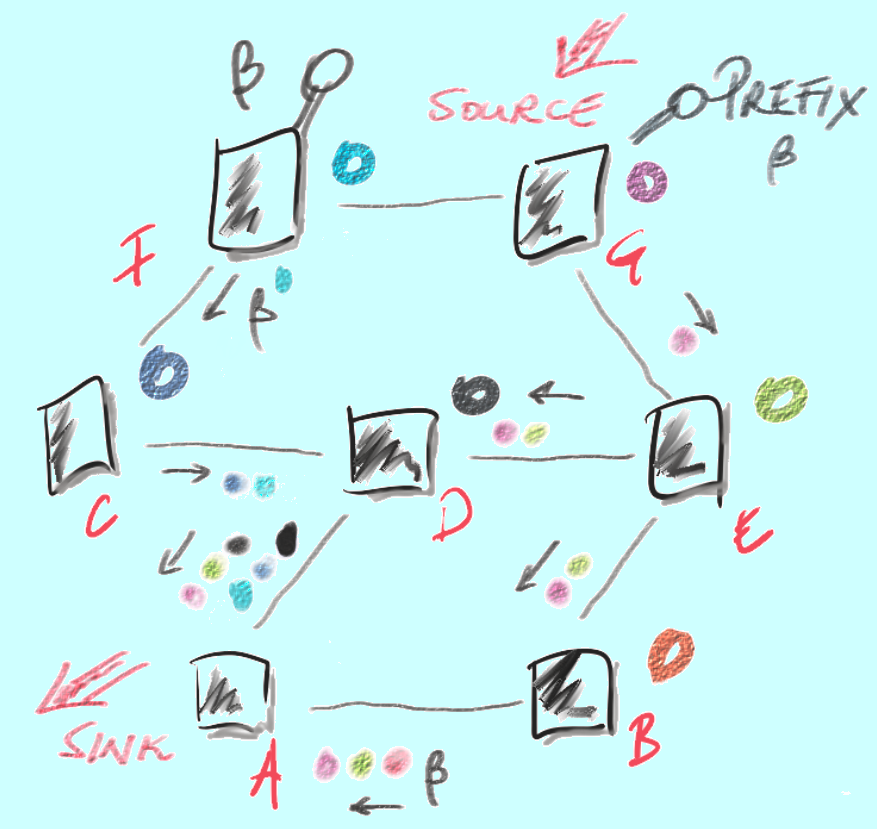 β
SOURCE
PREFIX
β
F
G
β
C
D
E
SINK
A
B
β